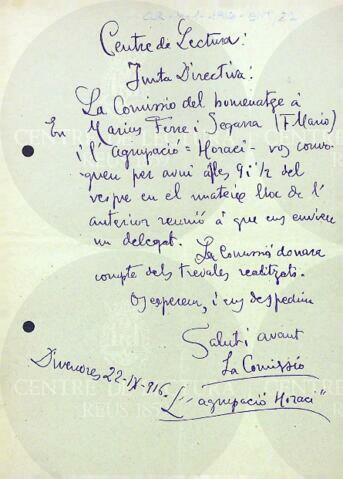 Centre de Lectura:
Junta Directiva:
La Comissio del homenatge á
En Marius Ferre i Segarra (F. Mario)
i l'Agrupació = Horaci - vos convo-
quen per avui a les 9 i ½ del
vespre en el mateix lloc de l'
anterior reunió á que ens envieu
un delegat. La Comissió donara
compte dels trevalls realitzats.
Os esperem, i ens despedim
Salut i avant
La Comissió
Divenores 22-IX-916.
L'"agrupació Horaci"